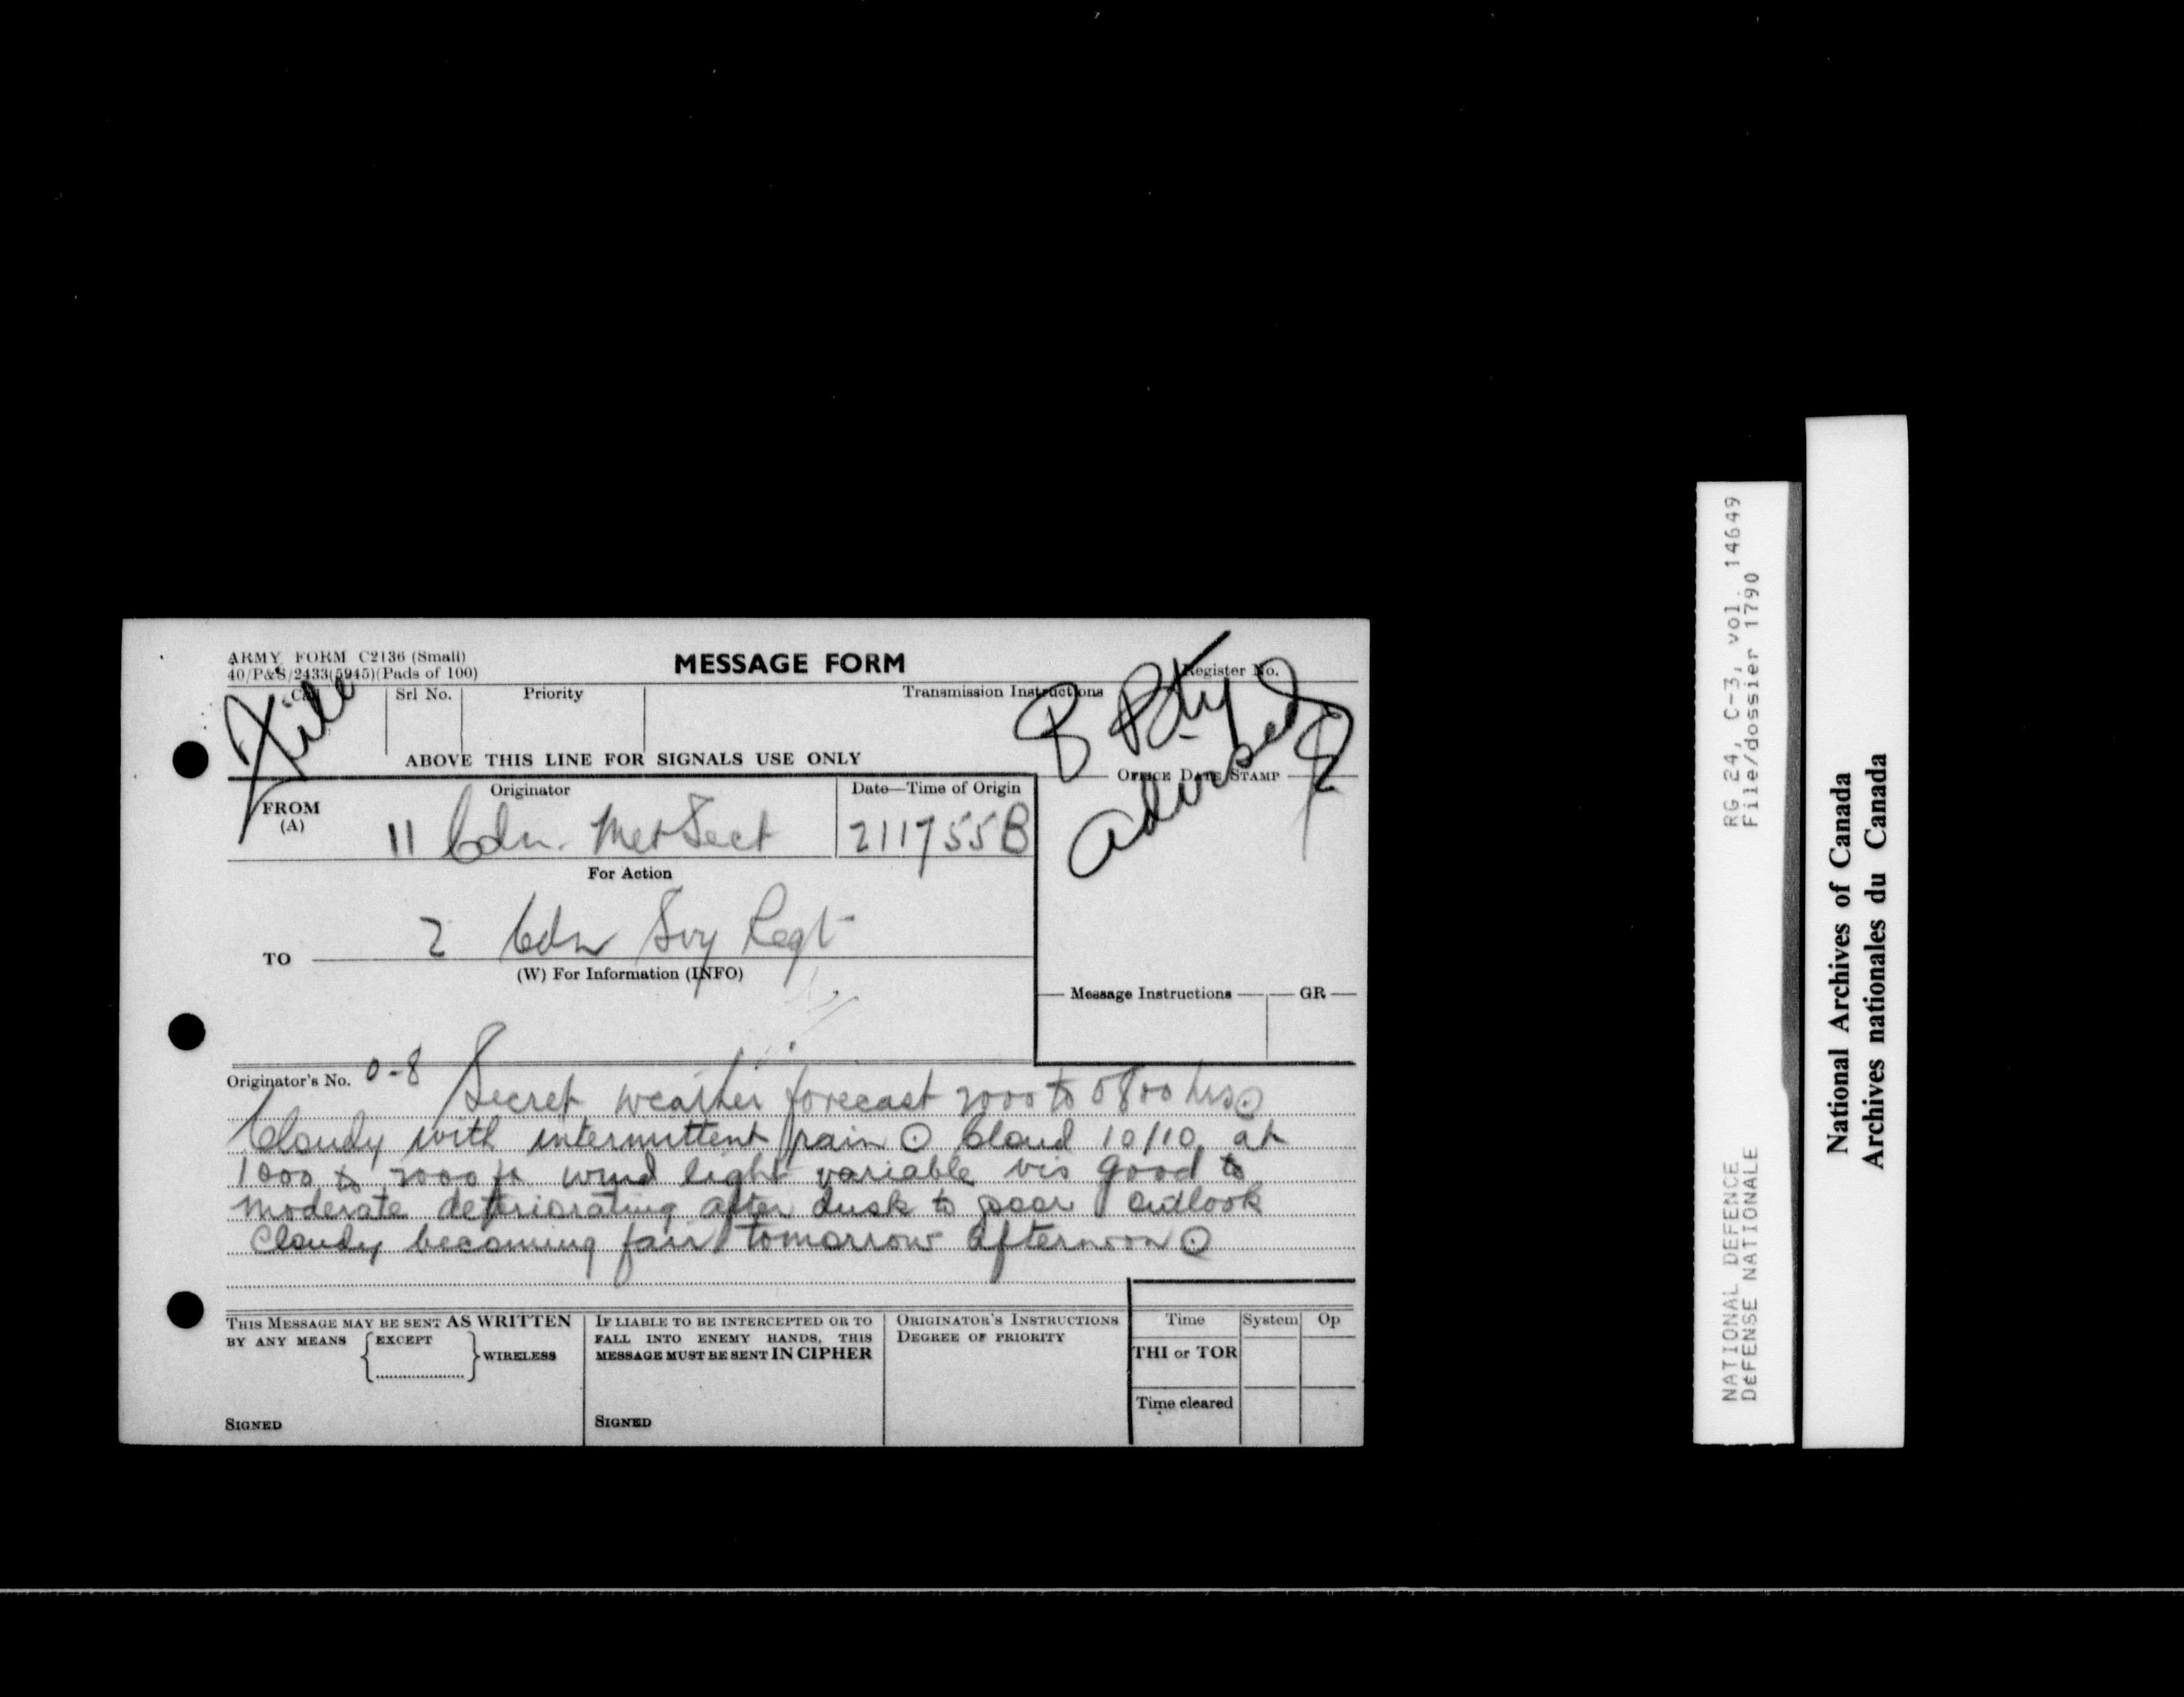 ARMY FORM C2136 (Small)
40/P&S/2433(5945)(Pads of 100)
MESSAGE FORM
Register No.
File
S Pty
advised
Call
Srl No.
Priority
Transmission Instructions
ABOVE THIS LINE FOR SIGNALS USE ONLY
Office Date Stamp
FROM
(A)
Originator
Date—Time of Origin
11 Cdn. Met Sect
211755B
For Action
TO
2 Cdn Svy Regt
(W) For Information (INFO)
Message Instructions
GR
Originator's No. 0-8
Secret weather forecast 2000 to 0800 hrs ⊙
Cloudy with intermittent rain ⊙ Cloud 10/10 at
1000 to 2000 ft wind light variable vis good to
moderate deteriorating after dusk to poor outlook
Cloudy becoming fair tomorrow afternoon ⊙
This Message may be sent AS WRITTEN
by any means
except
wireless
Signed
If liable to be intercepted or to
fall into enemy hands, this
message must be sent IN CIPHER
Signed
Originator's Instructions
Degree of Priority
Time
System
Op
THI or TOR
Time cleared
RG 24, C-3, vol. 14649
File/dossier 1790
NATIONAL DEFENCE
DEFENSE NATIONALE
National Archives of Canada
Archives nationales du Canada